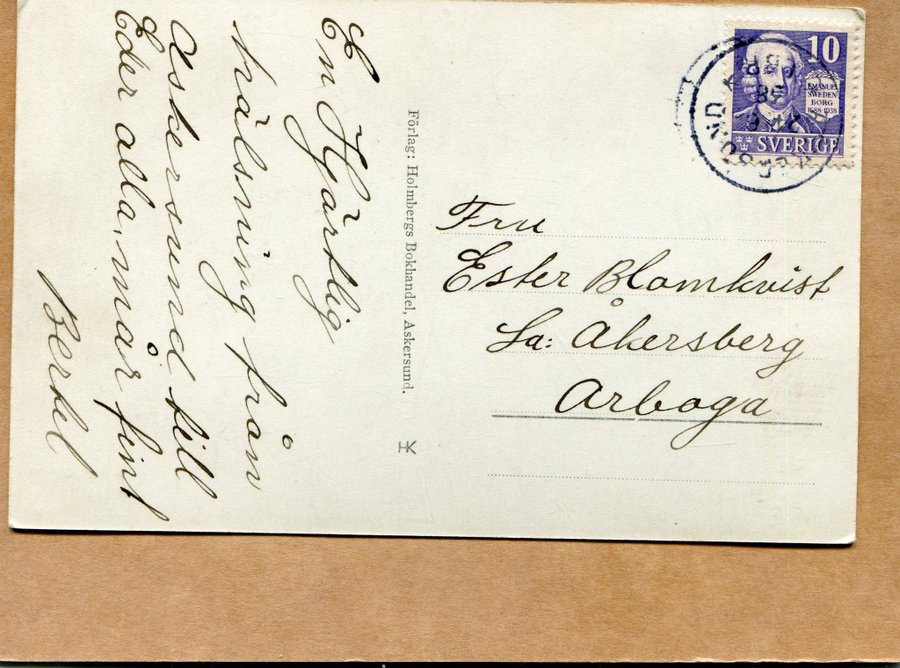 En Hjärtlig
hälsning från
Askersund till
Eder alla, mår fint
Bertel
Förlag: Holmbergs Bokhandel, Askersund.
10
EMANUEL
SWEDEN
BORG
1688-1938
SVERIGE
ASKERSUND
Fru
Ester Blomkvist
La: Åkersberg
Arboga